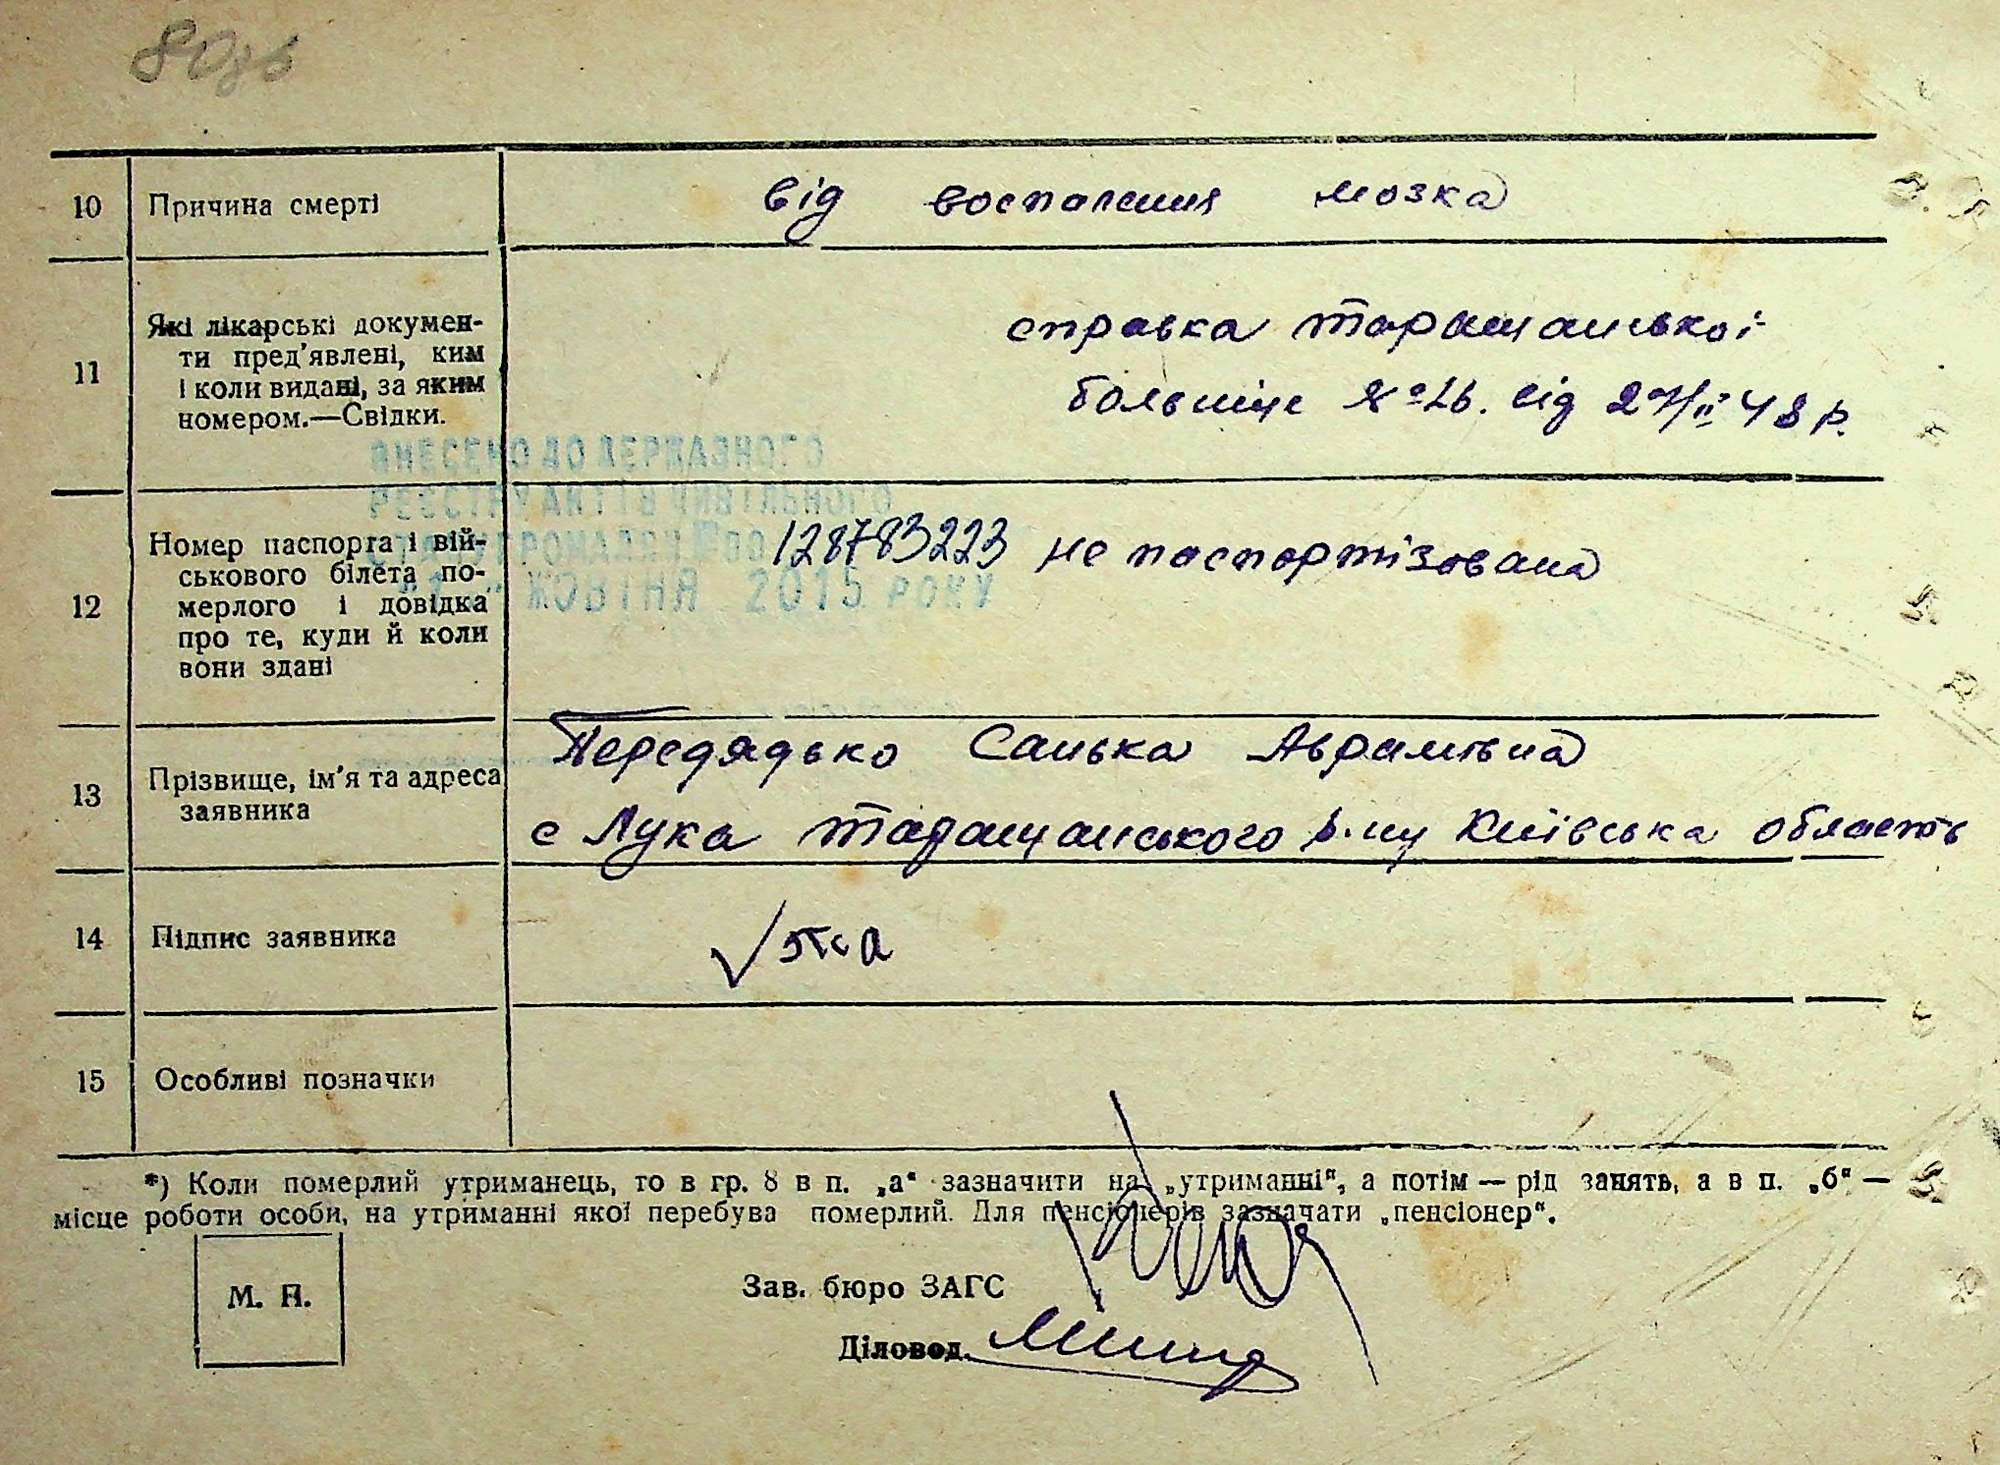 10
Причина смерті
від воспаления мозка
11
Які лікарські докумен-
ти пред'явлені, ким
і коли видані, за яким
номером.—Свідки.
справка таращанської
больниці № 26. від 27/II 48 р.
ВНЕСЕНО ДО ДЕРЖАВНОГО
РЕЄСТРУ АКТІВ ЦИВІЛЬНОГО
СТАНУ ГРОМАДЯН № 00 128783223
ЖОВТНЯ 2015 РОКУ
12
Номер паспорта і вій-
ськового білета по-
мерлого і довідка
про те, куди й коли
вони здані
не паспортізована
13
Прізвище, ім'я та адреса
заявника
Передядько Санька Аврамівна
с Лука таращанського р-ну Київська область
14
Підпис заявника
15
Особливі позначки
*) Коли померлий утриманець, то в гр. 8 в п. „а“ зазначити на „утриманні“, а потім — рід занять, а в п. „б“ —
місце роботи особи, на утриманні якої перебува померлий. Для пенсіонерів зазначати „пенсіонер“.
М. П.
Зав. бюро ЗАГС
Діловод.